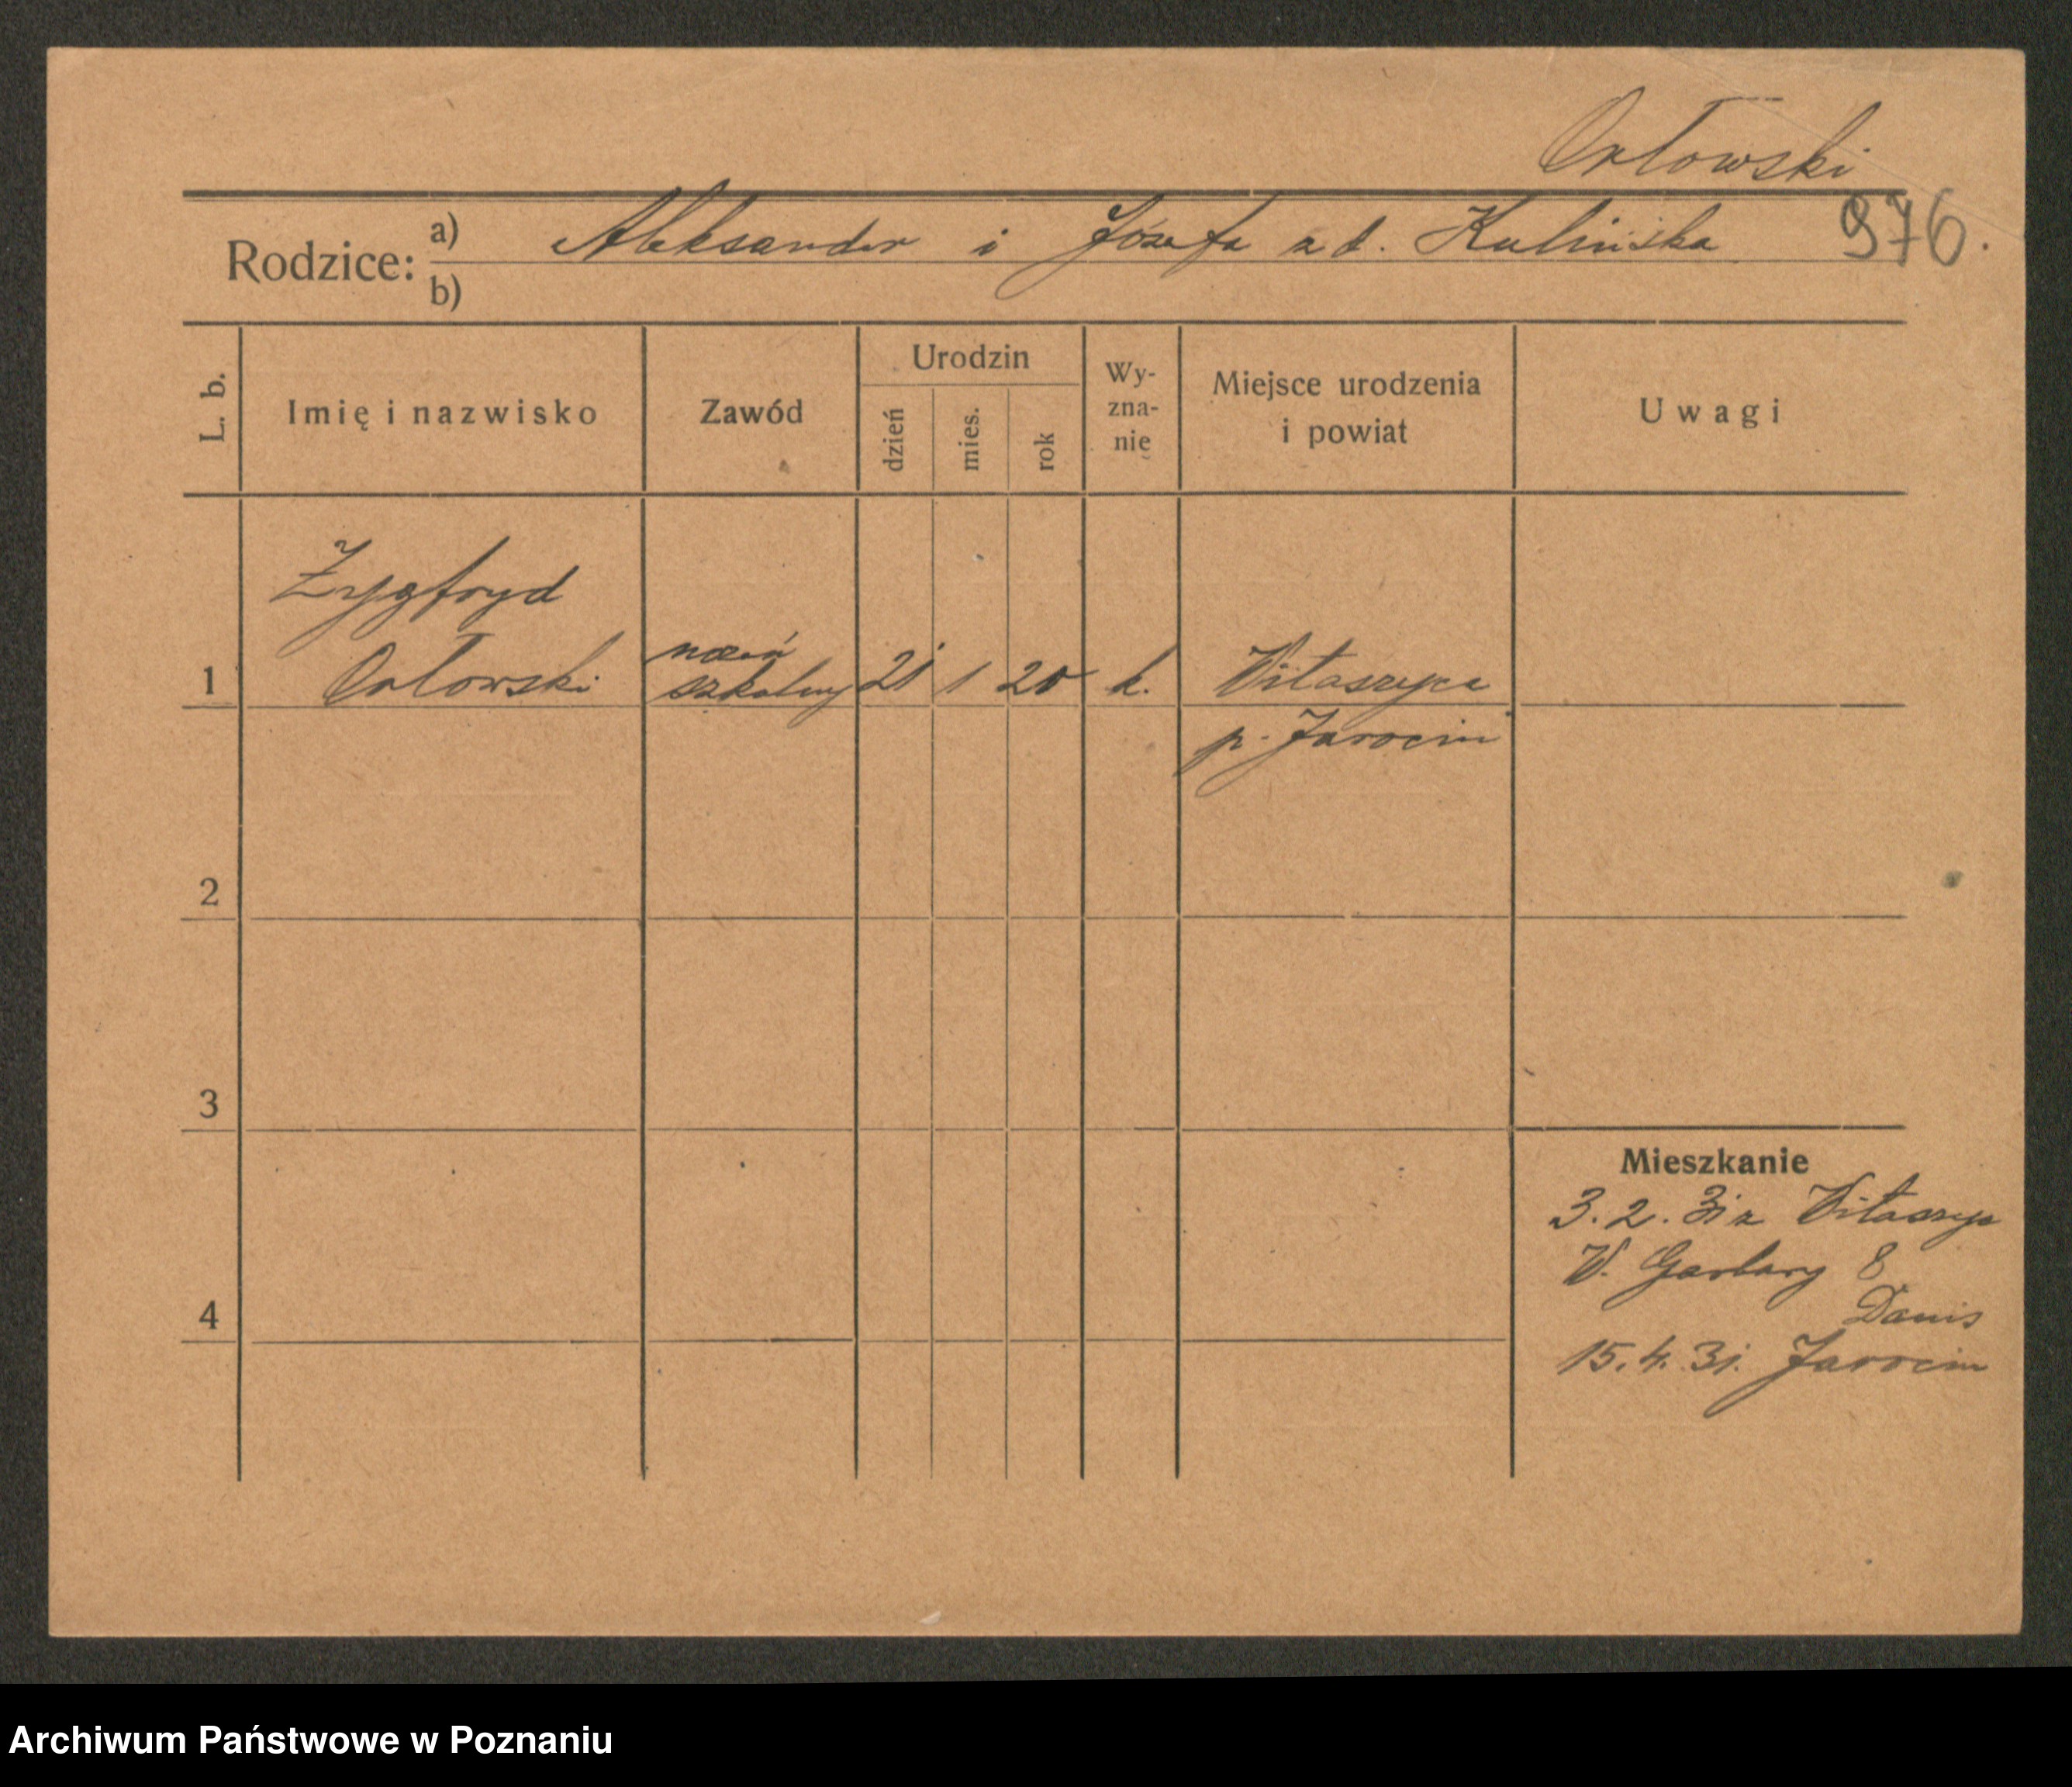 Orłowski
976.
Rodzice: a) Aleksander i Józefa z d. Kulińska
b)
L. b.
Imię i nazwisko
Zawód
Urodzin
dzień
mies.
rok
Wy-
zna-
nie
Miejsce urodzenia
i powiat
Uwagi
Zygfryd
1 Orłowski
uczeń
szkolny
21 1 20 k. Witaszyce
p. Jarocin
2
3
4
Mieszkanie
3. 2. 31 z Witaszyc
W. Garbary 8
Danis
15. 4. 31. Jarocin
Archiwum Państwowe w Poznaniu